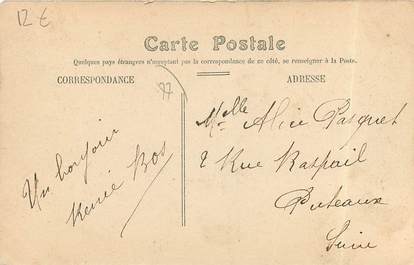 12 €
Carte Postale
Quelques pays étrangers n'acceptant pas la correspondance de ce côté, se renseigner à la Poste.
CORRESPONDANCE
ADRESSE
77
Un bonjour
Bos
Melle Alice Pasquet
2 Rue Raspail
Puteaux
Seine